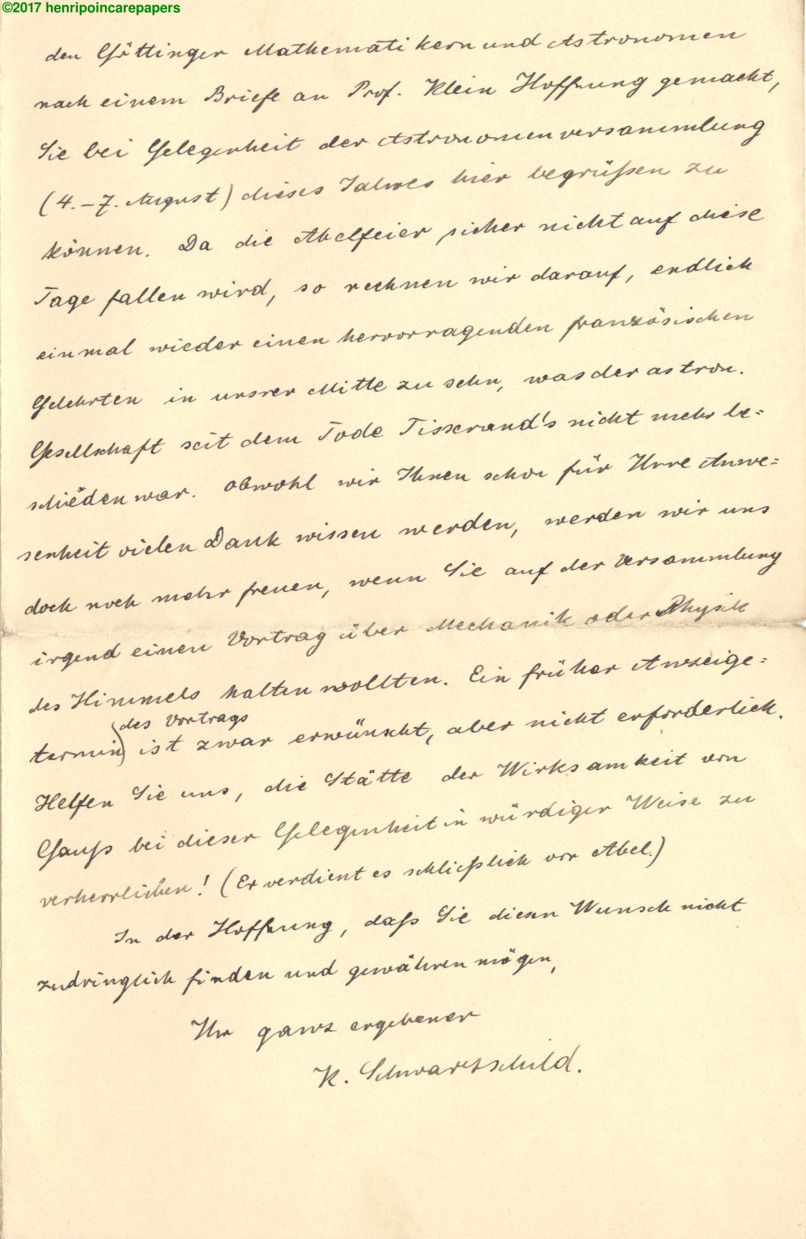 ©2017 henripoincarepapers
den Göttinger Mathematikern und Astronomen
nach einem Briefe an Prof. Klein Hoffnung gemacht,
Sie bei Gelegenheit der Astronomenversammlung
(4.–7. August) dieses Jahres hier begrüßen zu
können. Da die Abelfeier sicher nicht auf diese
Tage fallen wird, so rechnen wir darauf, endlich
einmal wieder einen hervorragenden französischen
Gelehrten in unsrer Mitte zu sehn, was der astron.
Gesellschaft seit dem Tode Tisserand's nicht mehr be=
schieden war. Obwohl wir Ihnen schon für Ihre Anwe=
senheit vielen Dank wissen werden, werden wir uns
doch noch mehr freuen, wenn Sie auf der Versammlung
irgend einen Vortrag über Mechanik oder Physik
des Himmels halten wollten. Ein früher Anzeige=
des Vortrags
termin ist zwar erwünscht, aber nicht erforderlich.
Helfen Sie uns, die Stätte der Wirksamkeit von
Gauß bei dieser Gelegenheit in würdiger Weise zu
verherrlichen! (Er verdient es schließlich vor Abel.)
In der Hoffnung, daß Sie diesen Wunsch nicht
zudringlich finden und gewähren mögen,
Ihr ganz ergebener
K. Schwarzschild.